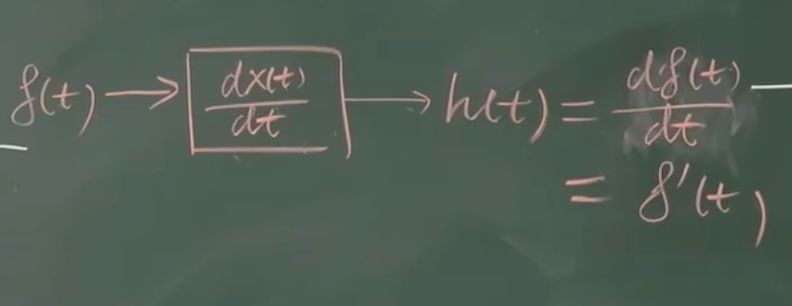 δ(t) → dx(t)/dt → h(t) = dδ(t)/dt
= δ'(t)